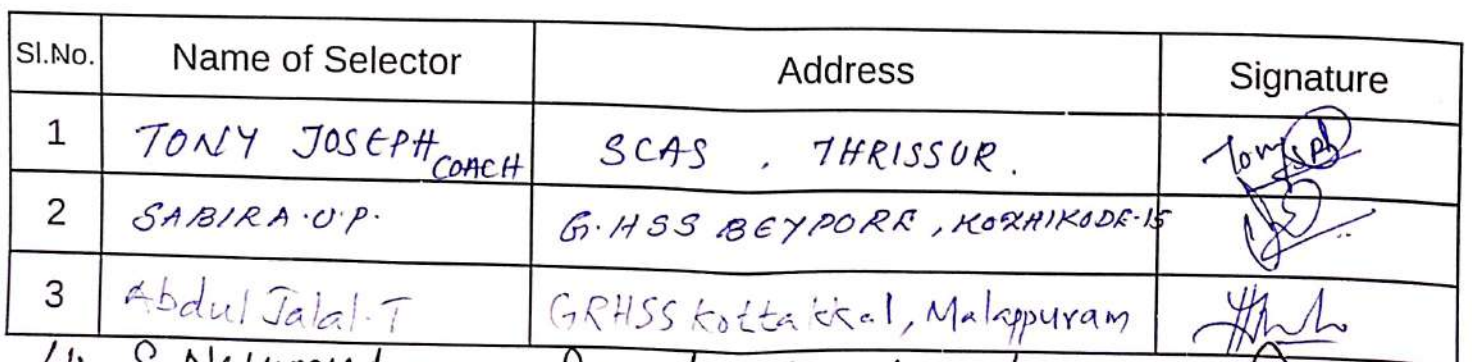 Sl.No. Name of Selector Address Signature
1 TONY JOSEPH COACH SCAS , THRISSUR.
2 SABIRA.U.P. G.HSS BEYPORE, KOZHIKODE-15
3 Abdul Jalal.T GRHSS Kottakkal, Malappuram